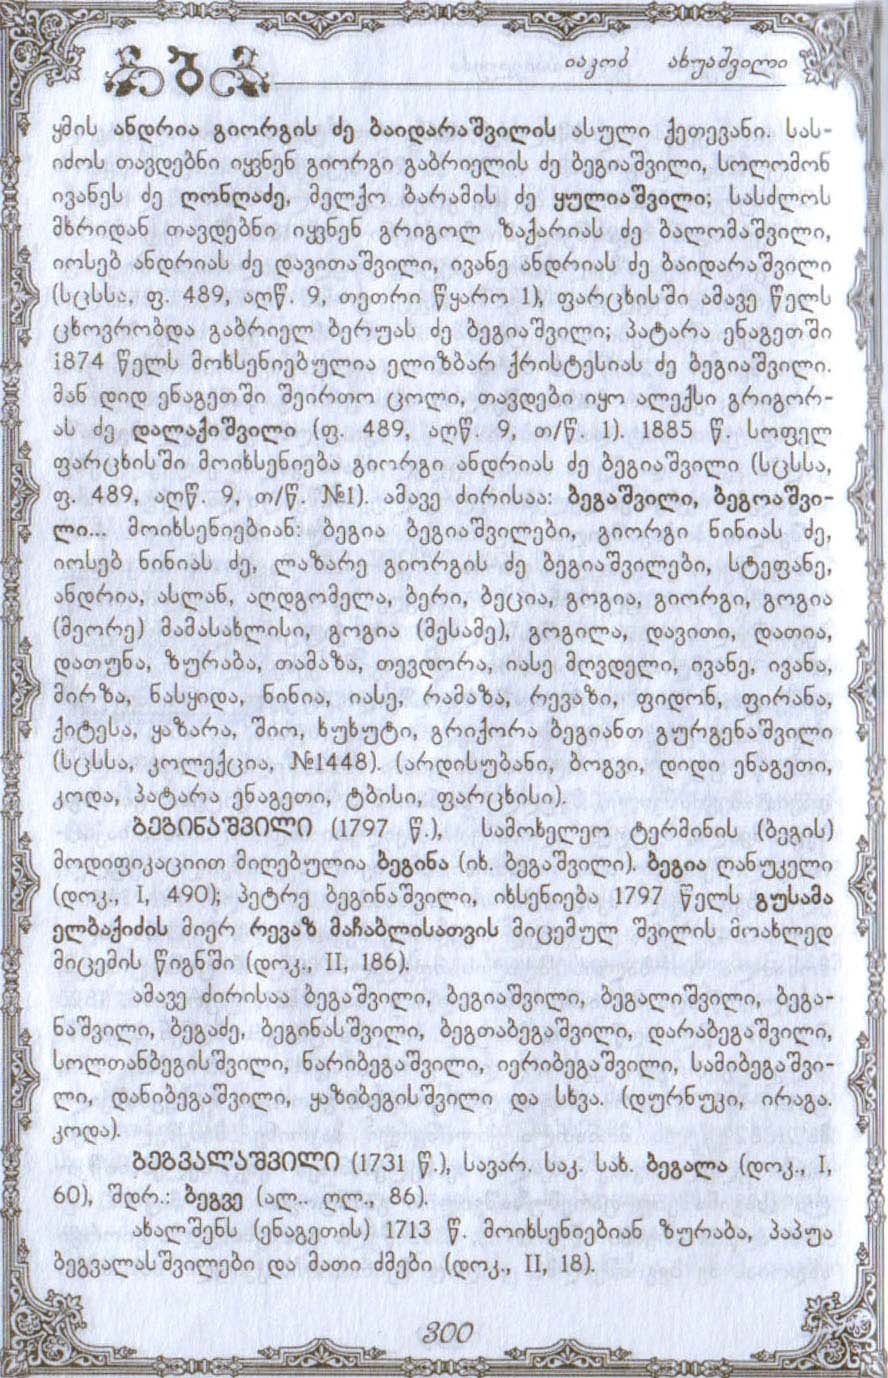 იაკობ ახუაშვილი
ყმის ანდრია გიორგის ძე ბაიდარაშვილის ასული ქეთევანი. სას-
იძოს თავდებნი იყვნენ გიორგი გაბრიელის ძე ბეგიაშვილი, სოლომონ
ივანეს ძე ღონღაძე, მელქო ბარამის ძე ყულიაშვილი; სასძლოს
მხრიდან თავდებნი იყვნენ გრიგოლ ზაქარიას ძე ბალომაშვილი,
იოსებ ანდრიას ძე დავითაშვილი, ივანე ანდრიას ძე ბაიდარაშვილი
(სცსსა, ფ. 489, აღწ. 9, თეთრი წყარო 1), ფარცხისში ამავე წელს
ცხოვრობდა გაბრიელ ბერუას ძე ბეგიაშვილი; პატარა ენაგეთში
1874 წელს მოხსენიებულია ელიზბარ ქრისტესიას ძე ბეგიაშვილი.
მან დიდ ენაგეთში შეირთო ცოლი, თავდები იყო ალექსი გრიგორ-
ას ძე დალაქიშვილი (ფ. 489, აღწ. 9, თ/წ. 1) 1885 წ. სოფელ
ფარცხისში მოიხსენიება გიორგი ანდრიას ძე ბეგიაშვილი (სცსსა,
ფ. 489, აღწ. 9, თ/წ. №1). ამავე ძირისაა: ბეგაშვილი, ბეგოაშვი-
ლი... მოიხსენიებიან: ბეგია ბეგიაშვილები, გიორგი ნინიას ძე,
იოსებ ნინიას ძე, ლაზარე გიორგის ძე ბეგიაშვილები, სტეფანე,
ანდრია, ასლან, აღდგომელა, ბერი, ბეცია, გოგია, გიორგი, გოგია
(მეორე) მამასახლისი, გოგია (მესამე), გოგილა, დავითი, დათია,
დათუნა, ზურაბა, თამაზა, თევდორა, იასე მღვდელი, ივანე, ივანა,
მირზა, ნასყიდა, ნინია, იასე, რამაზა, რევაზი, ფიდონ, ფირანა,
ქიტესა, ყაზარა, შიო, ხუხუტი, გრიქორა ბეგიანთ გურგენაშვილი
(სცსსა, კოლექცია, №1448). (არდისუბანი, ბოგვი, დიდი ენაგეთი,
კოდა, პატარა ენაგეთი, ტბისი, ფარცხისი).
ბეგინაშვილი (1797 წ.), სამოხელეო ტერმინის (ბეგის)
მოდიფიკაციით მიღებულია ბეგინა (იხ. ბეგაშვილი). ბეგია ღანუკელი
(დოკ., I, 490); პეტრე ბეგინაშვილი, იხსენიება 1797 წელს გუსამა
ელბაქიძის მიერ რევაზ მაჩაბლისათვის მიცემულ შვილის მოახლედ
მიცემის წიგნში (დოკ., II, 186).
ამავე ძირისაა ბეგაშვილი, ბეგიაშვილი, ბეგალიშვილი, ბეგა-
ნაშვილი, ბეგაძე, ბეგინასშვილი, ბეგთაბეგაშვილი, დარაბეგაშვილი,
სოლთანბეგისშვილი, ნარიბეგაშვილი, იერიბეგაშვილი, სამიბეგაშვი-
ლი, დანიბეგაშვილი, ყაზიბეგისშვილი და სხვა. (დურნუკი, ირაგა.
კოდა).
ბეგვალაშვილი (1731 წ.), სავარ. საკ. სახ. ბეგალა (დოკ., I,
60), შდრ.: ბეგვე (ალ., ღლ., 86).
ახალშენს (ენაგეთის) 1713 წ. მოიხსენიებიან ზურაბა, პაპუა
ბეგვალასშვილები და მათი ძმები (დოკ., II,118).
300